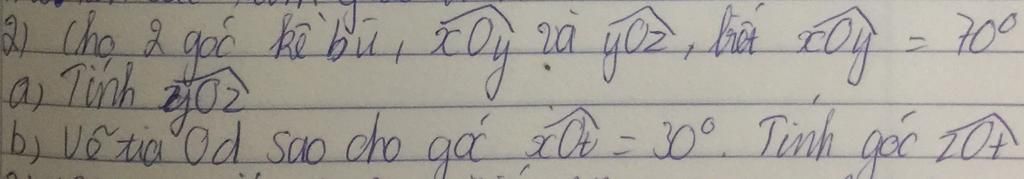 2) Cho 2 góc kề bù, xOy và yOz, biết xOy = 70°
a) Tính yOz
b) Vẽ tia Od sao cho góc xOt = 30°. Tính góc zOt